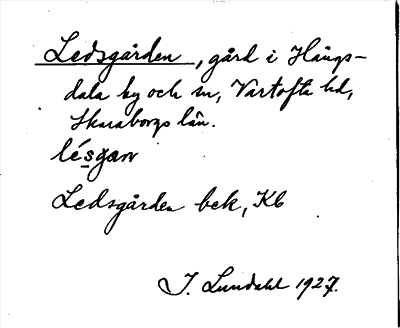 Ledsgården, gård i Hångs-
dala by och sn, Vartofta hd,
Skaraborgs län.
lésgaɴ
Ledsgården bek, Kb
J. Lundahl 1927.